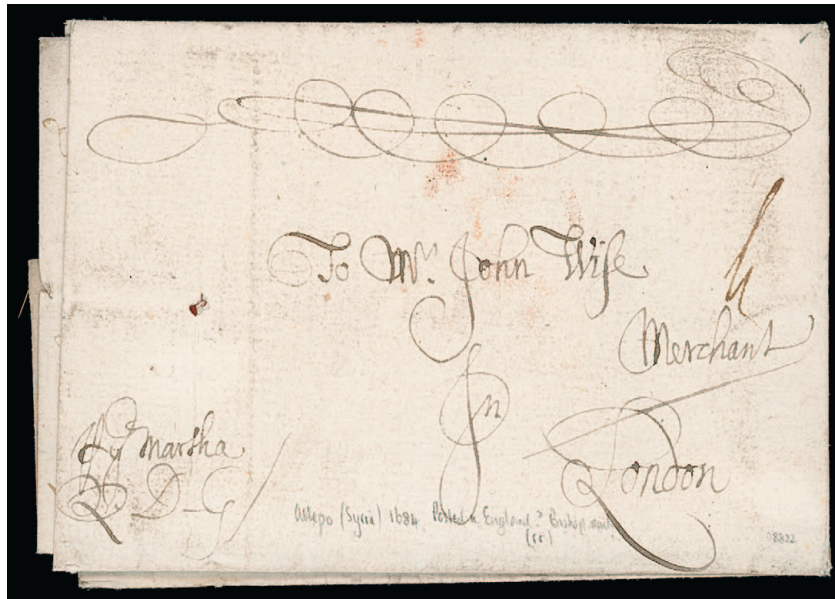 To Mr. John Wise
Merchant
In
London
Marsha
Q. D-G
Alleppo (Syria) 1684 Posted in England? Bishop mark
(rr)
8822